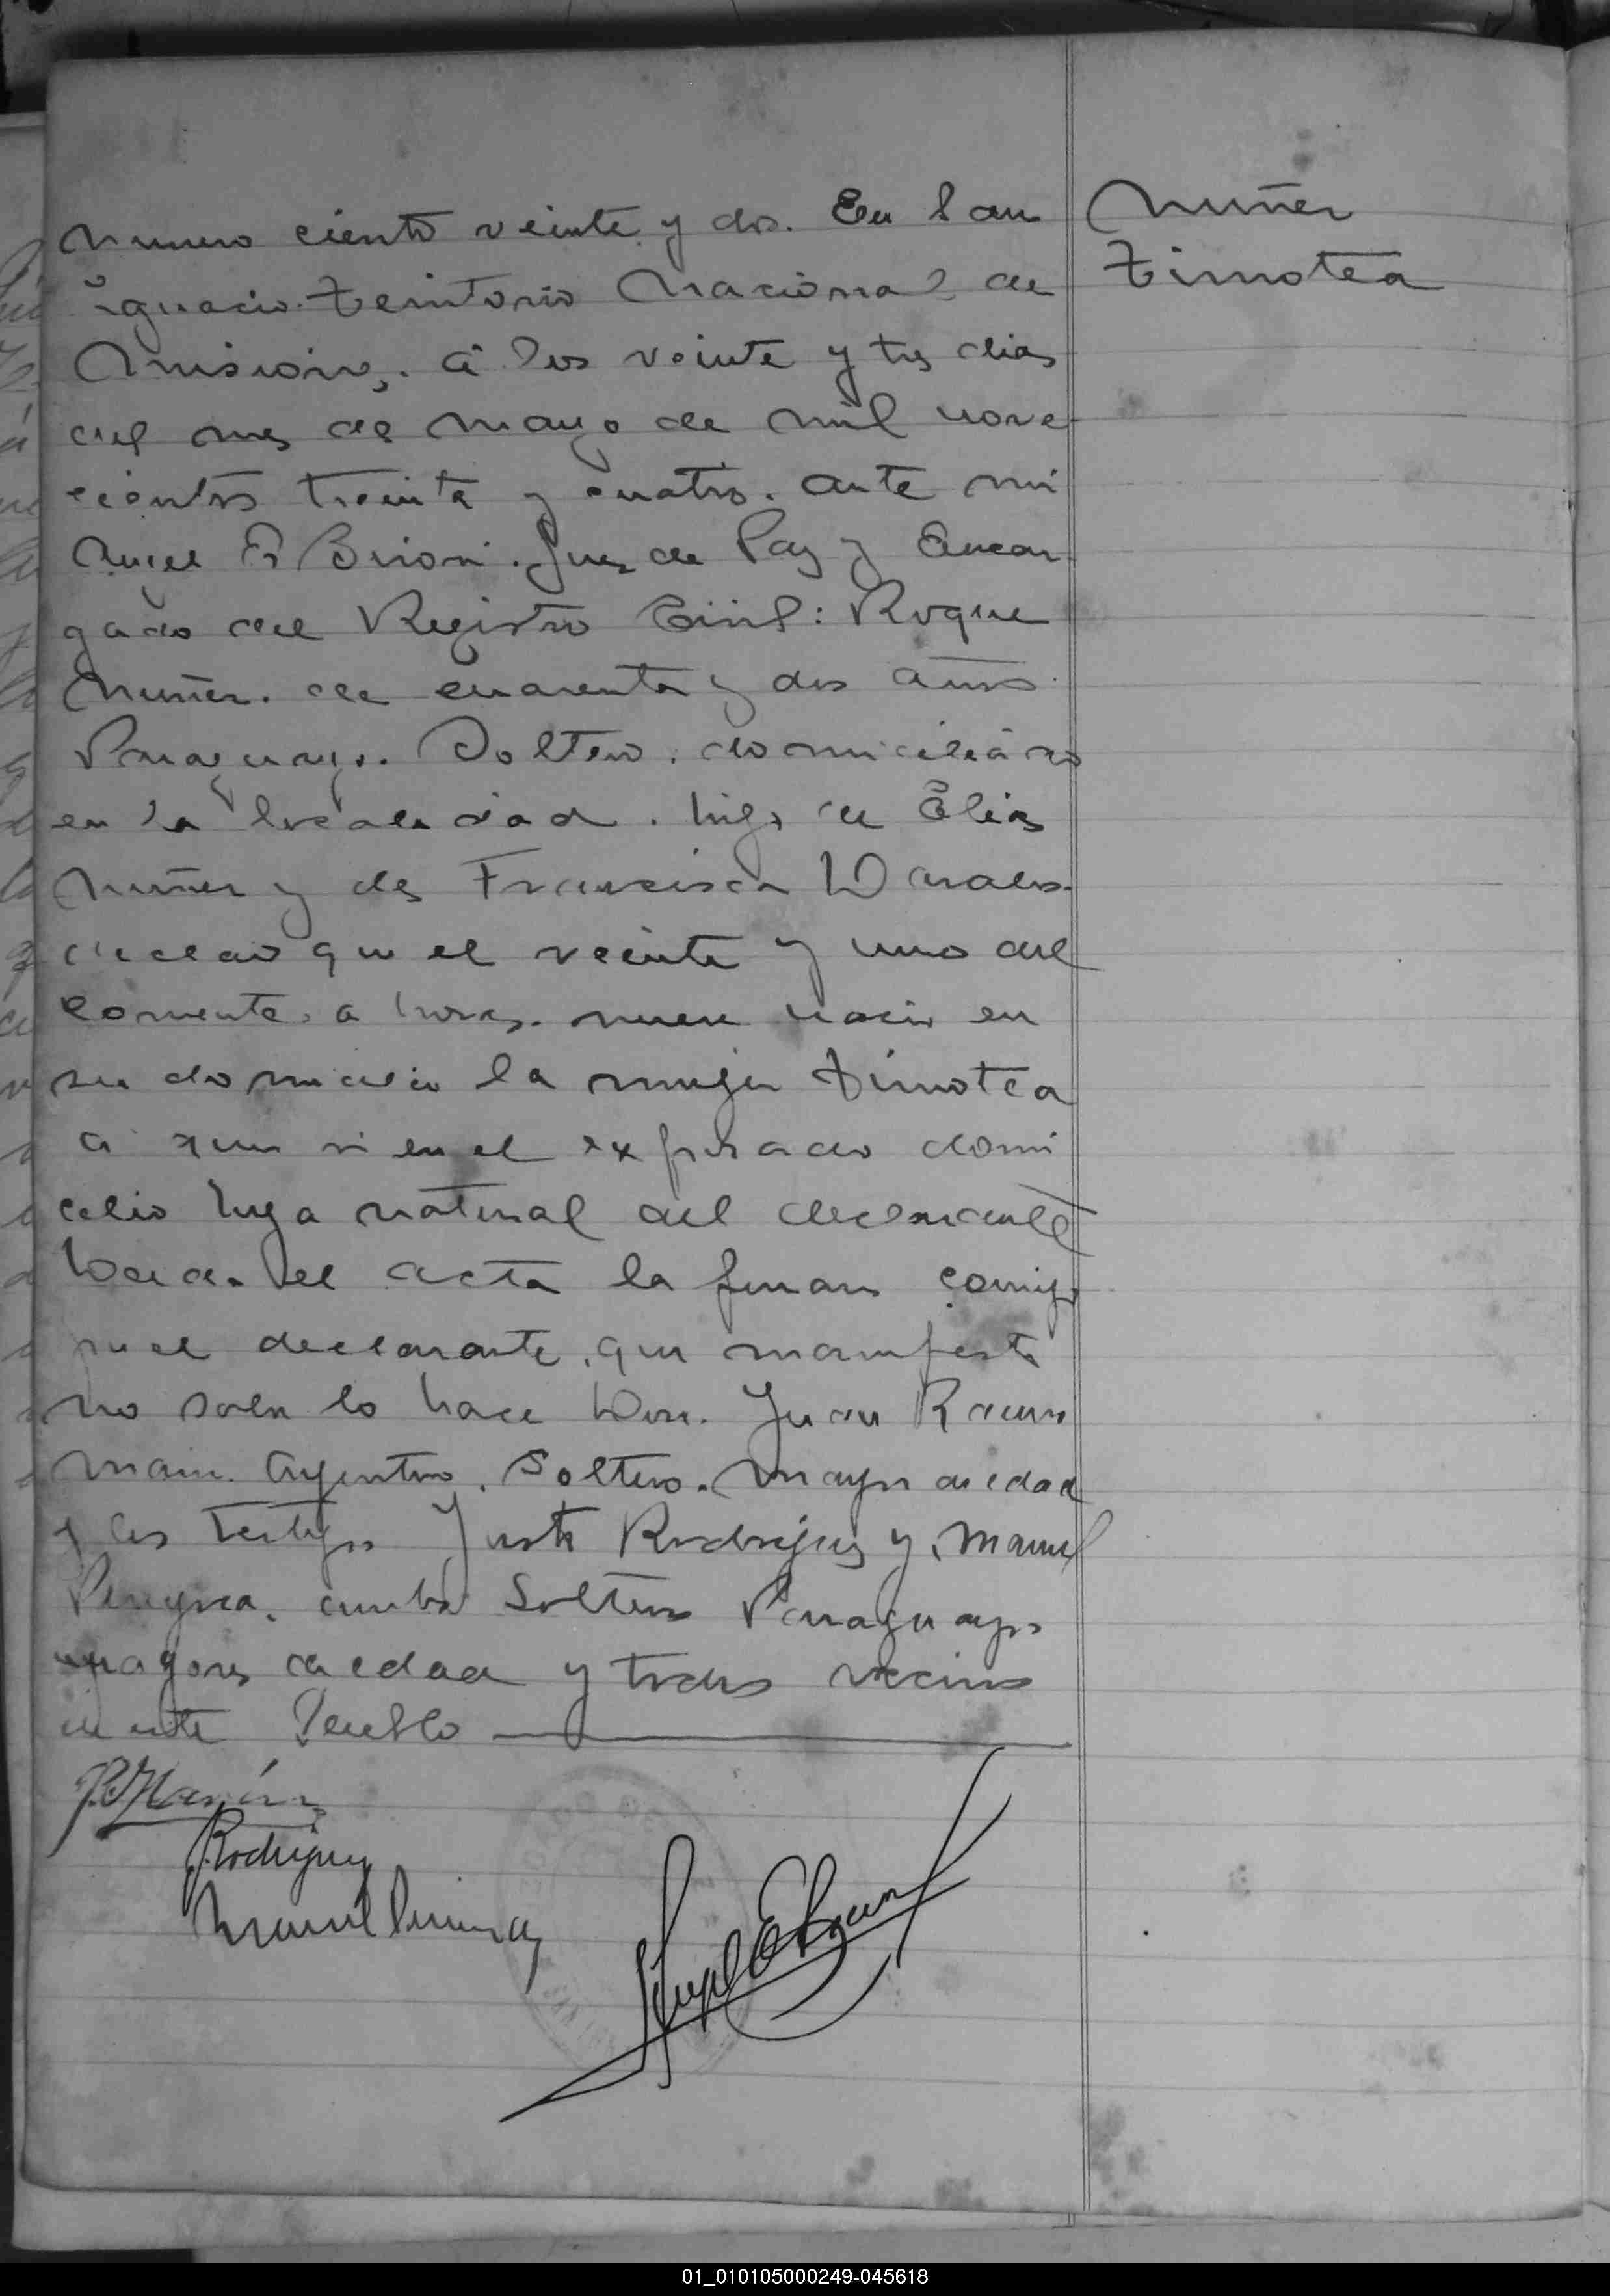 Numero ciento veinte y dos. En San
Ignacio Territorio Nacional de
Misiones, a los veinte y tres dias
del mes de mayo de mil nove-
cientos treinta y cuatro. ante mi
Angel E Brioni. Juez de Paz y Encar-
gado del Registro Civil: Roque
Nuñez. de cuarenta y dos años
Paraguayo. Soltero. domiciliado
en la localidad. hijo de Elias
Nuñez y de Francisca
declaro que el veinte y uno del
corriente a horas nueve nacio en
su domicilio la mujer Timotea
a quien vi en el expresado domi
cilio hija natural del declarante
Leida el acta la firman conmigo
por el declarante, que manifesto
no saber lo hace Don. Juan Ramon
Marin. Argentino. Soltero. mayor de edad
y los testigos Justo Rodriguez y Manuel
Pereyra. ambos Solteros Paraguayos
mayores de edad y todos vecinos
de este Pueblo
J.R. Marín
J. Rodriguez
Manuel
Angel E
Nuñez
Timotea
01_010105000249-045618